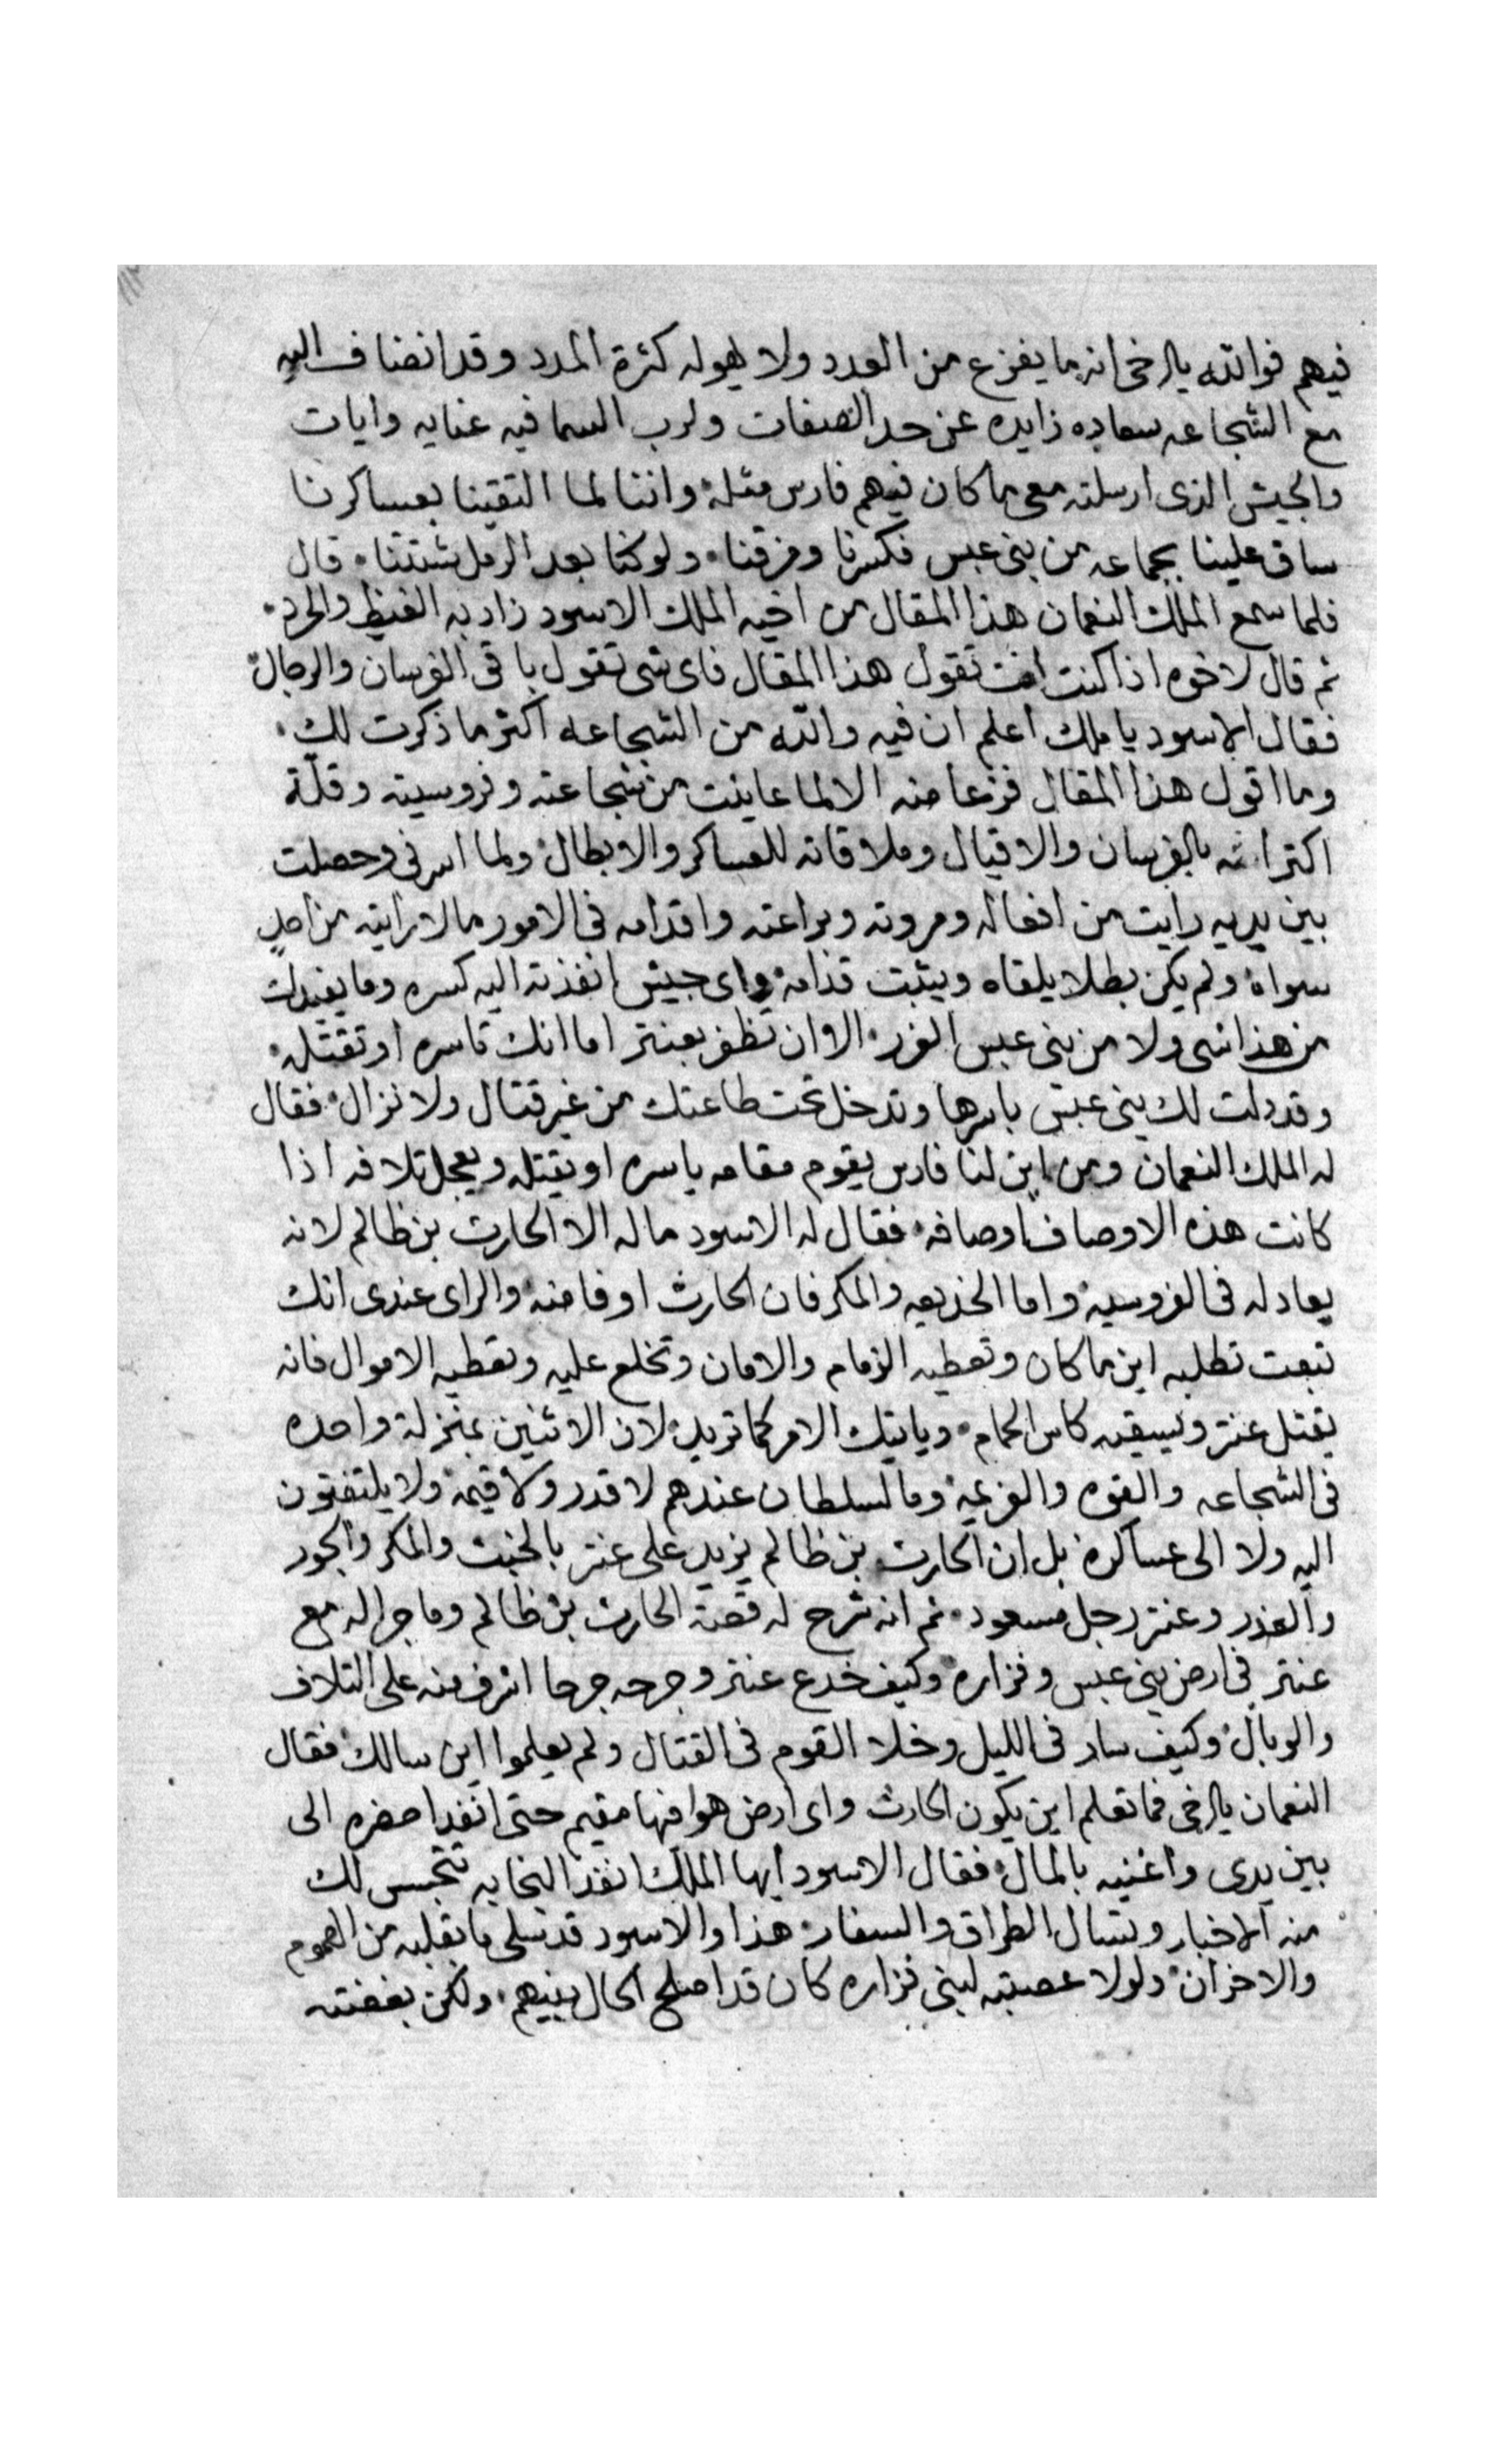 فيهم فوالله يا اخى انه ما يفزع من العدد ولا يهوله كثرة المدد وقد انضاف اليه
مع الشجاعه سعاده زايده عن حد الصفات ولرب السما فيه عنايه وايات
والجيش الذى ارسلته معى ما كان فيهم فارس مثله واننا لما التقينا بعساكرنا
ساق علينا بجماعه من بنى عبس فكسرنا ومزقنا ولو كنا بعدد الرمل شتتنا قال
فلما سمع الملك النعمان هذا المقال من اخيه الملك الاسود زاد به الغيظ والحرد
ثم قال لاخوه اذا كنت انت تقول هذا المقال فاى شى تقول باقى الفرسان والرجال
فقال الاسود يا ملك اعلم ان فيه والله من الشجاعه اكثر ما ذكرت لك
وما اقول هذا المقال فزعا منه الا لما عاينت من شجاعته وفروسيته وقلة
اكتراثه بالفرسان والاقيال وملاقاته للعساكر والابطال ولما اسرنى وحصلت
بين يديه رايت من افعاله ومروته وبراعته واقدامه فى الامور ما لا رايته من احد
سواه ولم يكن بطلا يلقاه ويثبت قدامه واى جيش انفذته اليه كسره وما يفيدك
من هذا شى ولا من بنى عبس الغرر الا ان تظفر بعنتر اما انك تاسره او تقتله
وقد دلت لك بنى عبس باسرها وتدخل تحت طاعتك من غير قتال ولا نزال فقال
له الملك النعمان ومن اين لنا فارس يقوم مقامه ياسره او يقتله ويعجل تلافه اذا
كانت هذه الاوصاف اوصافه فقال له الاسود ما له الا الحارث بن ظالم لانه
يعادله فى الفروسيه واما الخديعه والمكر فان الحارث اوفا منه والراى عندى انك
تبعت تطلبه اين ما كان وتعطيه الزمام والامان وتخلع عليه وتعطيه الاموال فانه
يقتل عنتر ويسيقه كاس الحمام وياتيك الامر كما تريد لان الاثنين بمنزلة واحده
فى الشجاعه والقوه والعزيمه وما لسلطان عندهم لا قدر ولا قيمه ولا يلتفتون
اليه ولا الى عساكره بل ان الحارث بن ظالم يزيد على عنتر بالخبث والمكر والجور
والغدر وعنتر رجل مسعود ثم انه شرح له قصة الحارث بن ظالم وما جرا له مع
عنتر فى ارض بنى عبس وفزاره وكيف خدع عنتر وجرحه جرحا اشرف منه على التلاف
والوبال وكيف سار فى الليل وخلا القوم فى القتال ولم يعلموا اين سالك فقال
النعمان يا اخى فما تعلم اين يكون الحارث واى ارض هو فيها مقيم حتى انفد احضره الى
بين يدى واغنيه بالمال فقال الاسود ايها الملك انفد النجابه تتجسس لك
منه الاخبار وتسال الطراق والسفار هذا والاسود قد تسلى ما بقلبه من الهموم
والاحزان ولولا عصبته لبنى فزاره كان قد اصلح الحال بينهم ولكن بغضته